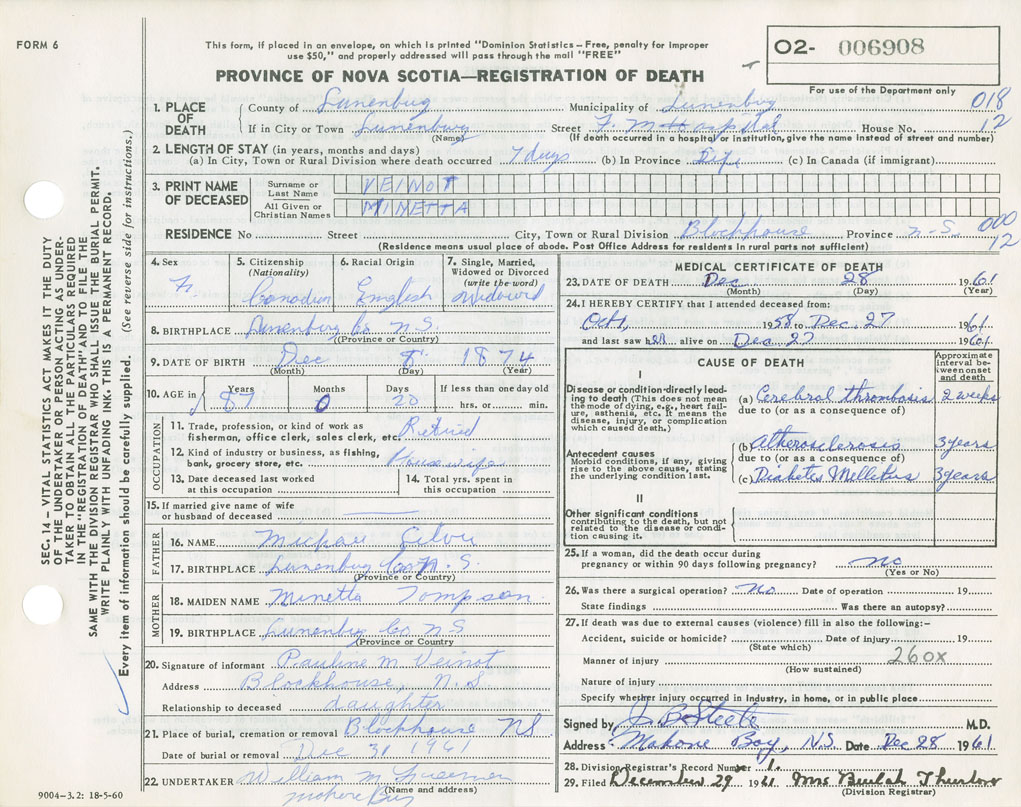 FORM 6
This form, if placed in an envelope, on which is printed "Dominion Statistics – Free, penalty for improper
use $50," and properly addressed will pass through the mail "FREE"
O2- 006908
PROVINCE OF NOVA SCOTIA—REGISTRATION OF DEATH
For use of the Department only
018
12
1. PLACE OF DEATH
County of Lunenburg Municipality of Lunenburg
If in City or Town Lunenburg Street F. M. Hospital House No.
(Name) (If death occurred in a hospital or institution, give the name instead of street and number)
2. LENGTH OF STAY (in years, months and days)
(a) In City, Town or Rural Division where death occurred 7 days (b) In Province Life (c) In Canada (if immigrant)
3. PRINT NAME OF DECEASED
Surname or Last Name VEINOT
All Given or Christian Names MINETTA
RESIDENCE No Street City, Town or Rural Division Blockhouse Province N.S.
(Residence means usual place of abode. Post Office Address for residents in rural parts not sufficient)
000
12
SEC. 14 – VITAL STATISTICS ACT MAKES IT THE DUTY
OF THE UNDERTAKER OR PERSON ACTING AS UNDER-
TAKER TO OBTAIN ALL THE PARTICULARS REQUIRED
IN THE "REGISTRATION OF DEATH" AND TO FILE THE
SAME WITH THE DIVISION REGISTRAR WHO SHALL ISSUE THE BURIAL PERMIT.
WRITE PLAINLY WITH UNFADING INK. THIS IS A PERMANENT RECORD.
Every item of information should be carefully supplied. (See reverse side for instructions.)
4. Sex F.
5. Citizenship (Nationality) Canadian
6. Racial Origin English
7. Single, Married, Widowed or Divorced (write the word) Widowed
8. BIRTHPLACE Lunenburg Co N.S.
(Province or Country)
9. DATE OF BIRTH Dec 8 1874
(Month) (Day) (Year)
10. AGE in Years 87 Months 0 Days 20 If less than one day old hrs. or min.
OCCUPATION
11. Trade, profession, or kind of work as
fisherman, office clerk, sales clerk, etc. Retired
12. Kind of industry or business, as fishing,
bank, grocery store, etc. Housewife
13. Date deceased last worked
at this occupation
14. Total yrs. spent in
this occupation
15. If married give name of wife
or husband of deceased
FATHER
16. NAME Michael
17. BIRTHPLACE Lunenburg Co N.S.
(Province or Country)
MOTHER
18. MAIDEN NAME Minetta Tompson
19. BIRTHPLACE Lunenburg Co NS
(Province or Country
20. Signature of informant Pauline M. Veinot
Address Blockhouse, N.S
Relationship to deceased daughter
21. Place of burial, cremation or removal Blockhouse NS
Date of burial or removal Dec 31 1961
22. UNDERTAKER William M
(Name and address)
Mahone Bay
9004-3.2: 18-5-60
MEDICAL CERTIFICATE OF DEATH
23. DATE OF DEATH Dec 28 1961
(Month) (Day) (Year)
24. I HEREBY CERTIFY that I attended deceased from:
Oct, 1958 to Dec. 27 1961
and last saw her alive on Dec 27 1961
CAUSE OF DEATH
Approximate interval between onset and death
I
Disease or condition directly lead-
ing to death (This does not mean
the mode of dying, e.g., heart fail-
ure, asthenia, etc. It means the
disease, injury, or complication
which caused death.)
(a) Cerebral thrombosis 2 weeks
due to (or as a consequence of)
Antecedent causes
Morbid conditions, if any, giving
rise to the above cause, stating
the underlying condition last.
(b) Atherosclerosis 3 years
due to (or as a consequence of)
(c) Diabetes Mellitus 3 years
II
Other significant conditions
contributing to the death, but not
related to the disease or condi-
tion causing it.
25. If a woman, did the death occur during
pregnancy or within 90 days following pregnancy? no
(Yes or No)
26. Was there a surgical operation? No Date of operation 19
State findings Was there an autopsy?
27. If death was due to external causes (violence) fill in also the following:-
Accident, suicide or homicide? Date of injury 19
(State which)
Manner of injury 260X
(How sustained)
Nature of injury
Specify whether injury occurred in industry, in home, or in public place
Signed by J B Steele M.D.
Address Mahone Bay, N.S. Date Dec 28 1961
28. Division Registrar's Record Number 1.
29. Filed December 29 1961 Mrs Beulah
(Division Registrar)